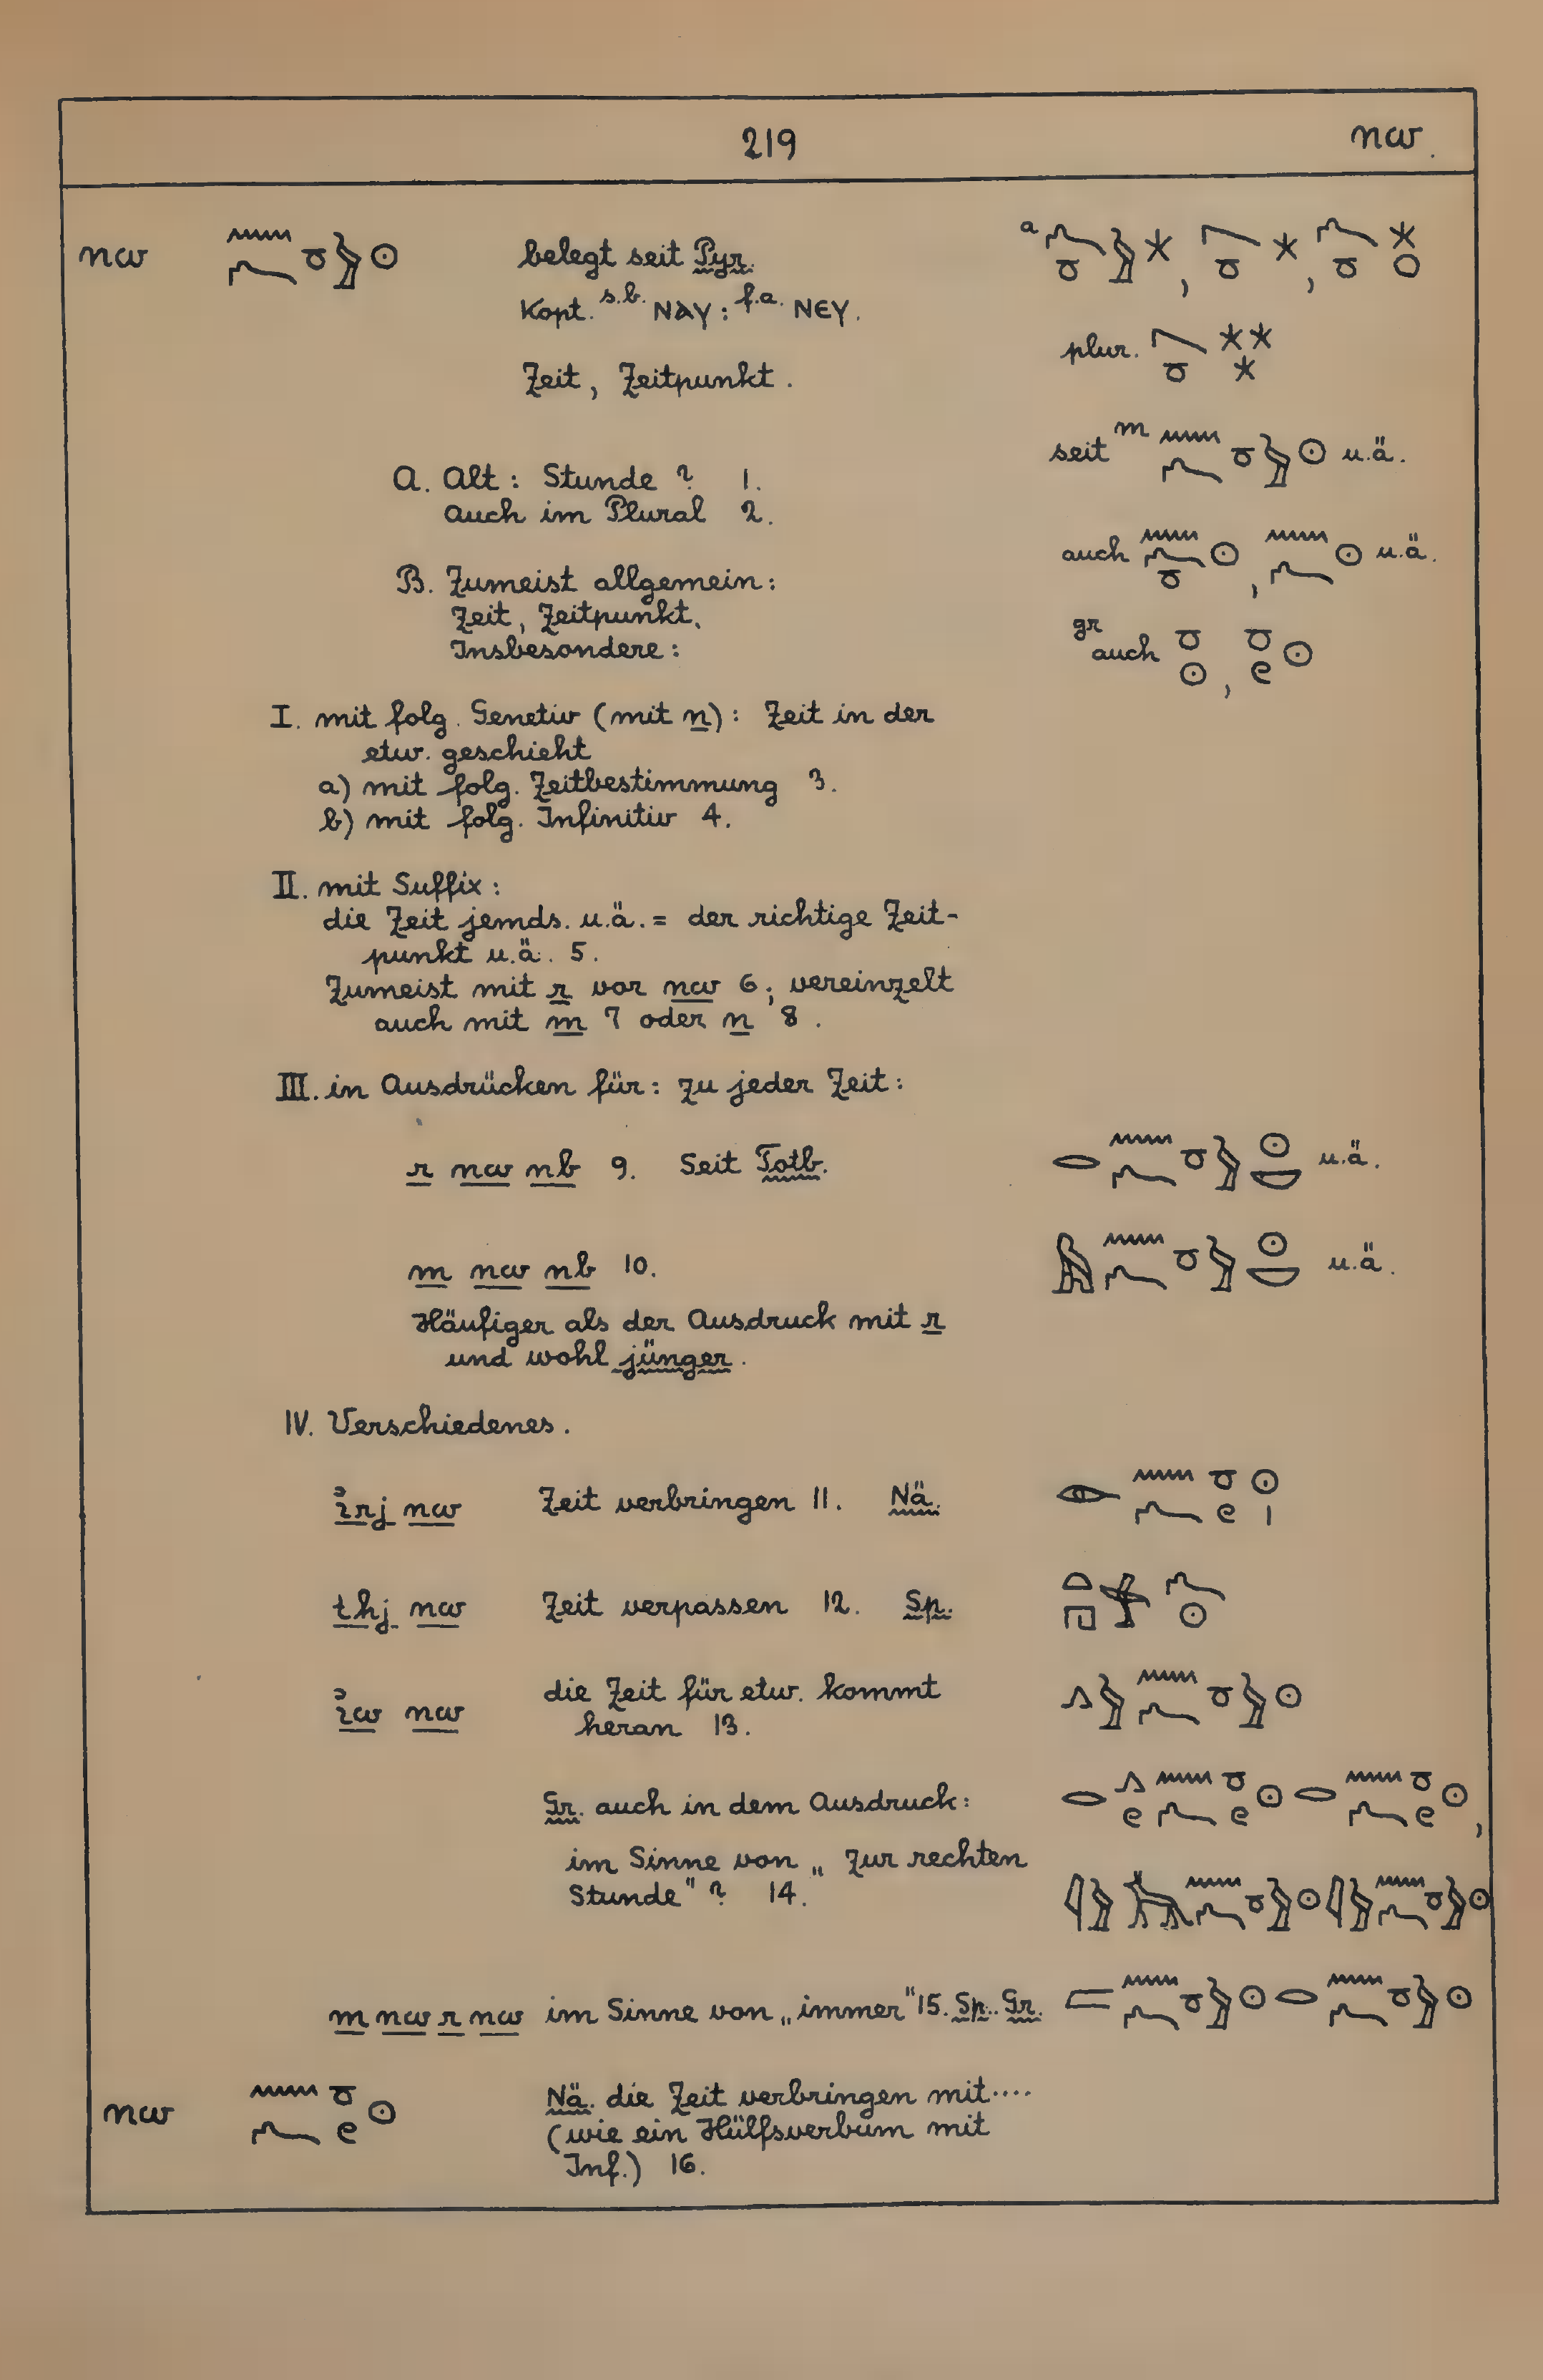 219 nw.
nw belegt seit Pyr.
Kopt. s.b. ⲚⲀⲨ : f.a. ⲚⲈⲨ.
plur.
Zeit, Zeitpunkt.
seit m u.ä.
A. Alt: Stunde? 1.
auch im Plural 2.
auch , u.ä.
B. Zumeist allgemein:
Zeit, Zeitpunkt.
Insbesondere:
gr auch ,
I. mit folg. Genetiv (mit n): Zeit in der
etw. geschieht
a) mit folg. Zeitbestimmung 3.
b) mit folg. Infinitiv 4.
II. mit Suffix:
die Zeit jemds. u.ä. = der richtige Zeit-
punkt u.ä. 5.
Zumeist mit r vor nw 6; vereinzelt
auch mit m 7 oder n 8.
III. in Ausdrücken für: zu jeder Zeit:
r nw nb 9. Seit Totb. u.ä.
m nw nb 10. u.ä.
Häufiger als der Ausdruck mit r
und wohl jünger.
IV. Verschiedenes.
ı͗rj nw Zeit verbringen 11. Nä.
thj nw Zeit verpassen 12. Sp.
ı͗w nw die Zeit für etw. kommt
heran 13.
Gr. auch in dem Ausdruck:
im Sinne von „zur rechten
Stunde"? 14.
m nw r nw im Sinne von „immer" 15. Sp. Gr.
nw Nä. die Zeit verbringen mit....
(wie ein Hülfsverbum mit
Inf.) 16.